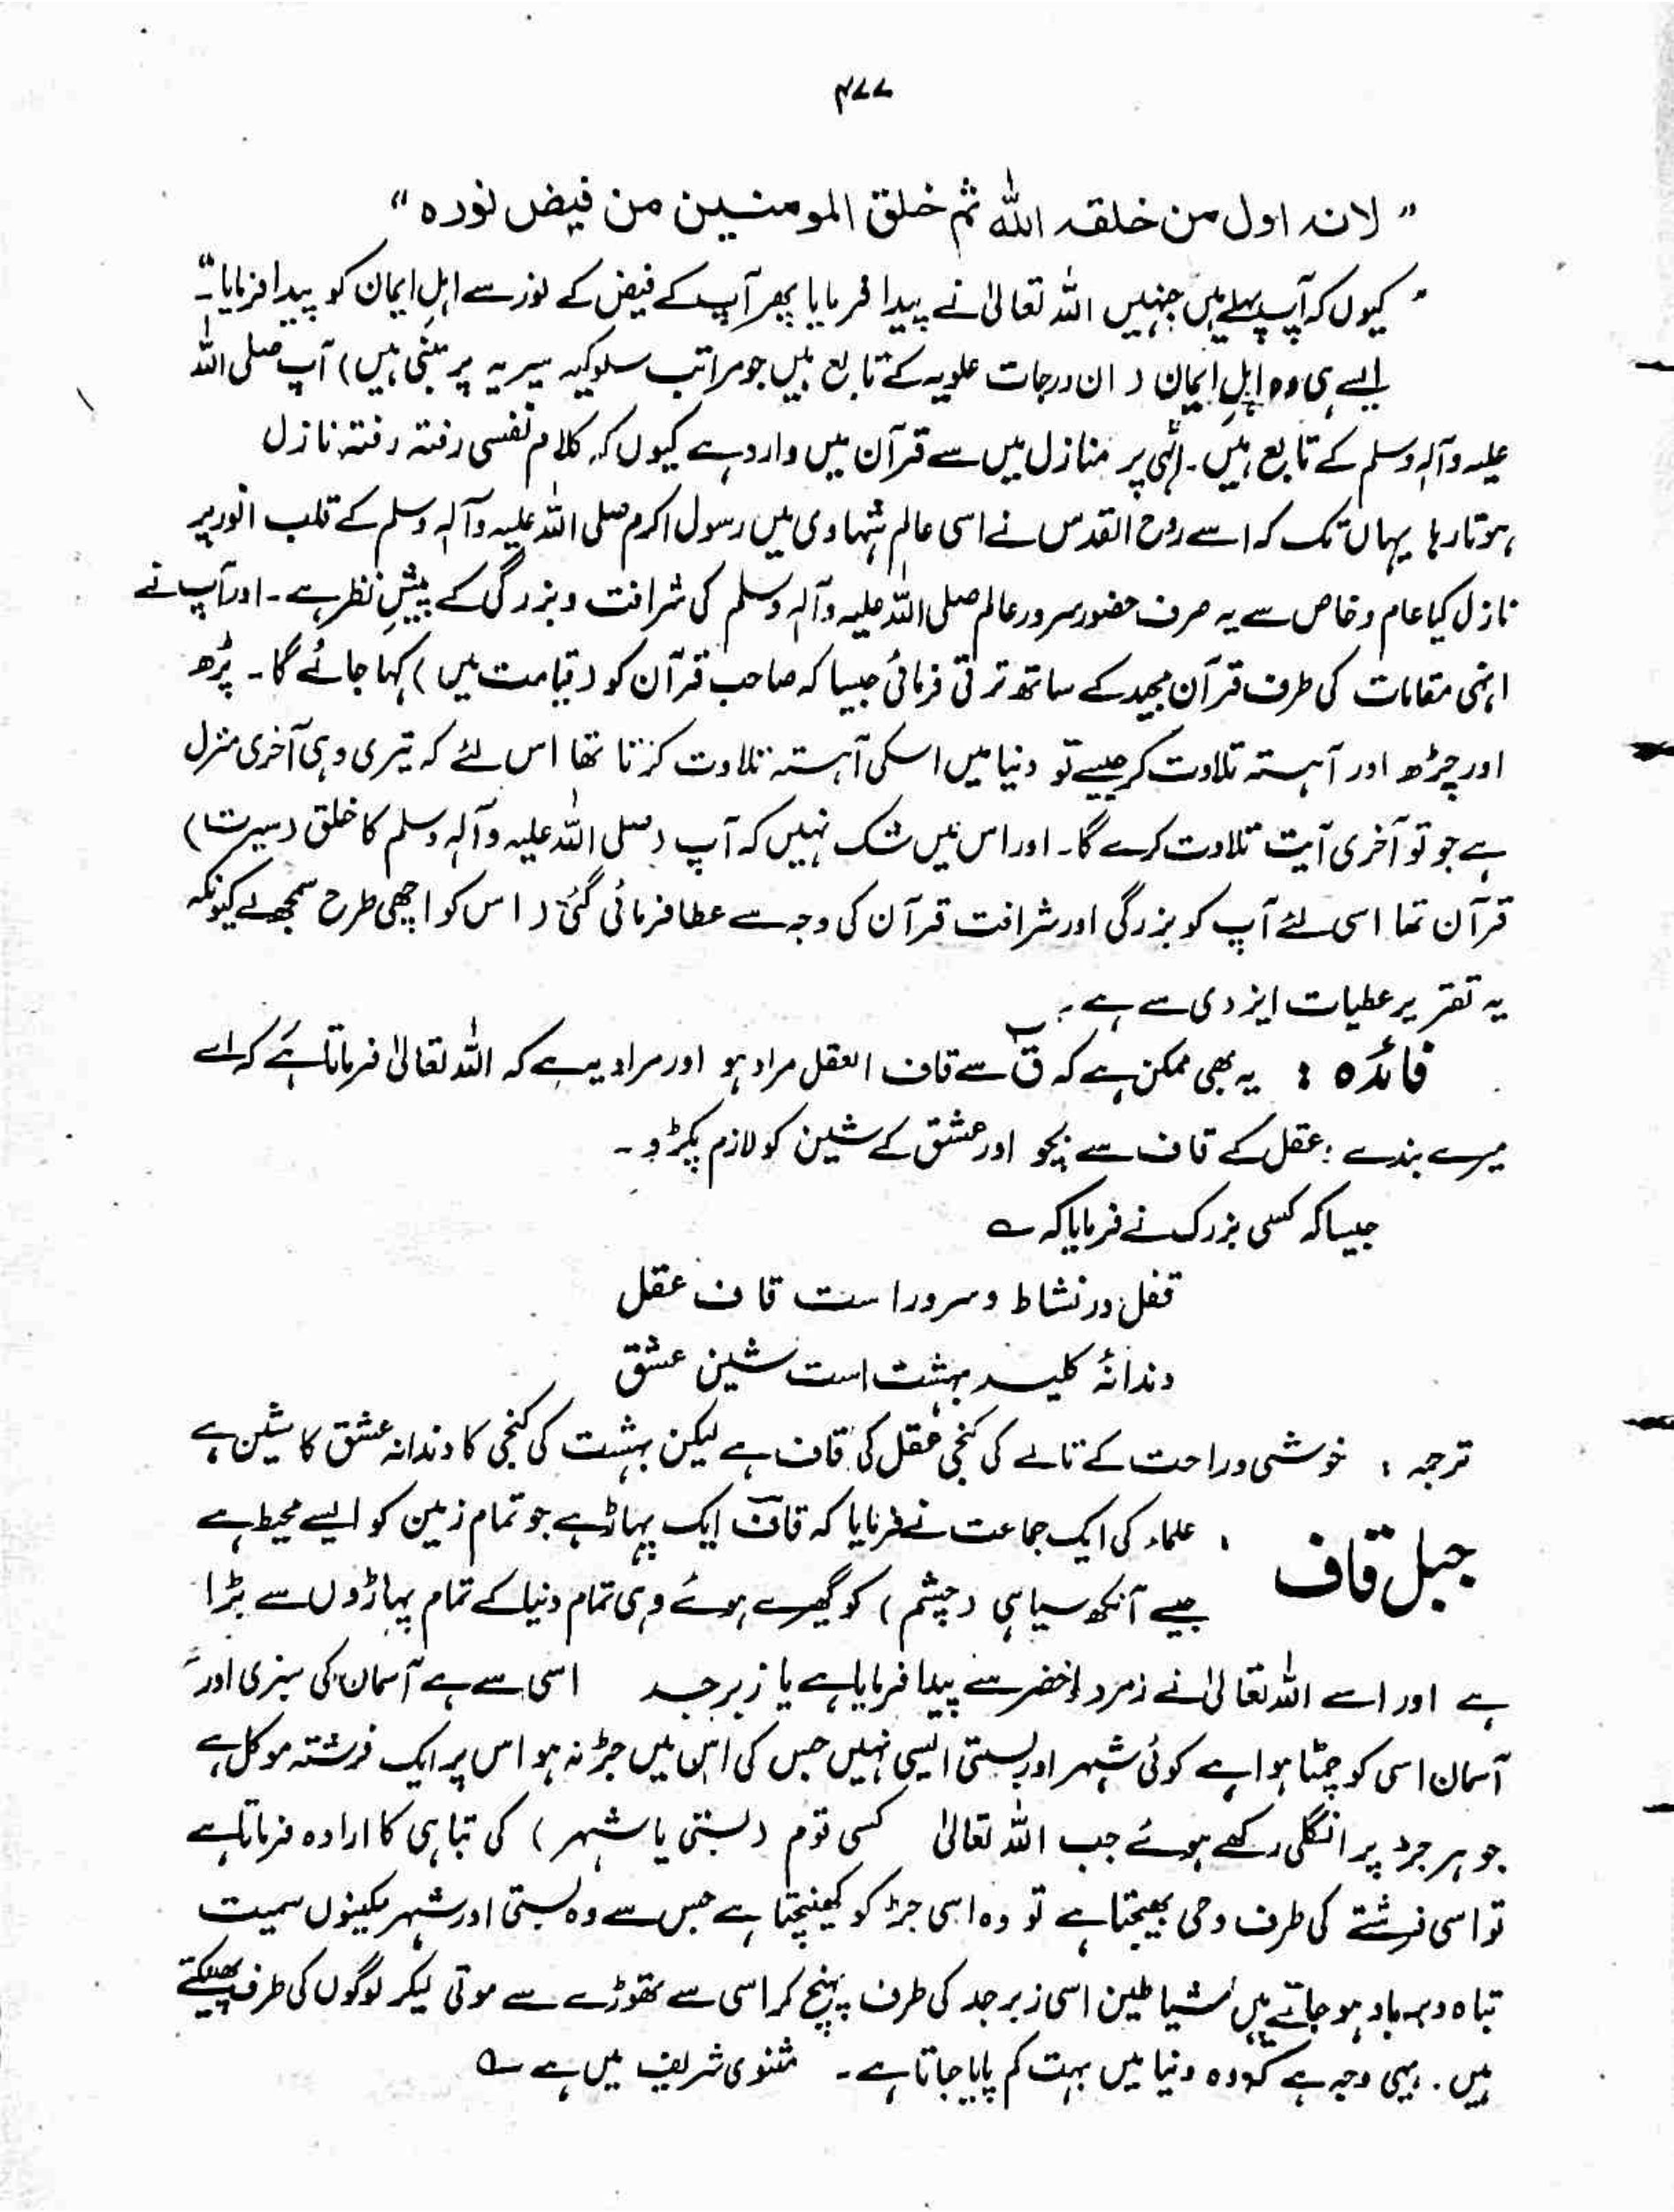 ۴۷۷
" لانہ اول من خلقہ اللہ ثم خلق المومنین من فیض نورہ "
" کیوں کہ آپ پہلے ہیں جنہیں اللہ تعالیٰ نے پیدا فرمایا پھر آپ کے فیض کے نور سے اہلِ ایمان کو پیدا فرمایا۔"
ایسے ہی وہ اہلِ ایمان ( ان درجات علویہ کے تابع ہیں جو مراتب سلوکیہ سیریہ پر مبنی ہیں) آپ صلی اللہ
علیہ وآلہ وسلم کے تابع ہیں۔ انہی پر منازل میں سے قرآن میں وارد ہے کیوں کہ کلام نفسی رفتہ رفتہ نازل
ہوتا رہا یہاں تک کہ اسے روح القدس نے اسی عالم شہادی میں رسول اکرم صلی اللہ علیہ وآلہ وسلم کے قلب انور پر
نازل کیا عام و خاص سے یہ صرف حضور سرور عالم صلی اللہ علیہ وآلہ وسلم کی شرافت و بزرگی کے پیشِ نظر ہے۔ اور آپ نے
انہی مقامات کی طرف قرآن مجید کے ساتھ ترقی فرمائی جیسا کہ صاحب قرآن کو (قیامت میں) کہا جائے گا۔ پڑھ
اور چڑھ اور آہستہ تلاوت کر جیسے تو دنیا میں اسکی آہستہ تلاوت کرتا تھا اس لئے کہ تیری وہی آخری منزل
ہے جو تو آخری آیت تلاوت کرے گا۔ اور اس میں شک نہیں کہ آپ (صلی اللہ علیہ وآلہ وسلم کا خلق (سیرت)
قرآن تھا اسی لئے آپ کو بزرگی اور شرافت قرآن کی وجہ سے عطا فرمائی گئی ( اس کو اچھی طرح سمجھ لے کیونکہ
یہ تقریر عطیات ایزدی سے ہے۔
فائدہ : یہ بھی ممکن ہے کہ قٓ سے قاف العقل مراد ہو اور مراد یہ ہے کہ اللہ تعالیٰ فرماتا ہے کہ اے
میرے بندے : عقل کے قاف سے بچو اور عشق کے شین کو لازم پکڑو۔
جیسا کہ کسی بزرگ نے فرمایا کہ ؎
قفل در نشاط و سرور است قاف عقل
دندانۂ کلید بہشت است شین عشق
ترجمہ : خوشی و راحت کے تالے کی کنجی عقل کی قاف ہے لیکن بہشت کی کنجی کا دندانہ عشق کا شین ہے
جبل قاف : علماء کی ایک جماعت نے فرمایا کہ قاف ایک پہاڑ ہے جو تمام زمین کو ایسے محیط ہے
جیسے آنکھ سیاہی (چشم) کو گھیرے ہوئے وہی تمام دنیا کے تمام پہاڑوں سے بڑا
ہے اور اسے اللہ تعالیٰ نے زمرد اخضر سے پیدا فرمایا ہے یا زبرجد اسی سے ہے آسمان کی سبزی اور
آسمان اسی کو چمٹا ہوا ہے کوئی شہر اور بستی ایسی نہیں جس کی اس میں جڑ نہ ہو اس پر ایک فرشتہ موکل ہے
جو ہر جڑ پر انگلی رکھے ہوئے جب اللہ تعالیٰ کسی قوم (بستی یا شہر) کی تباہی کا ارادہ فرماتا ہے
تو اسی فرشتے کی طرف وحی بھیجتا ہے تو وہ اسی جڑ کو کھینچتا ہے جس سے وہ بستی اور شہر مکینوں سمیت
تباہ و برباد ہو جاتے ہیں شیاطین اسی زبرجد کی طرف پہنچ کر اسی سے تھوڑے سے موتی لیکر لوگوں کی طرف پھینکتے
ہیں۔ یہی وجہ ہے کہ وہ دنیا میں بہت کم پایا جاتا ہے۔ مثنوی شریف میں ہے ؎